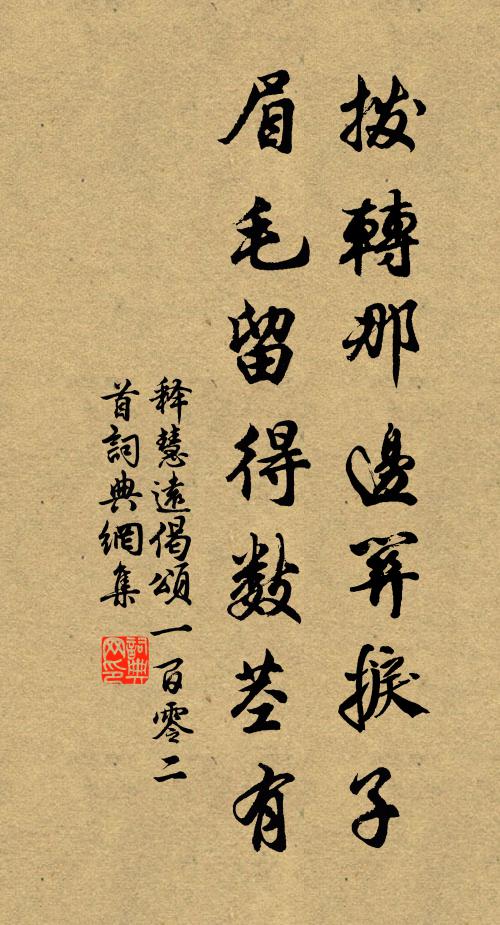 撥轉那邊關捩子
眉毛留得数茎有
释慧遠偈頌一百零二
首詞典網集
詞典
网印